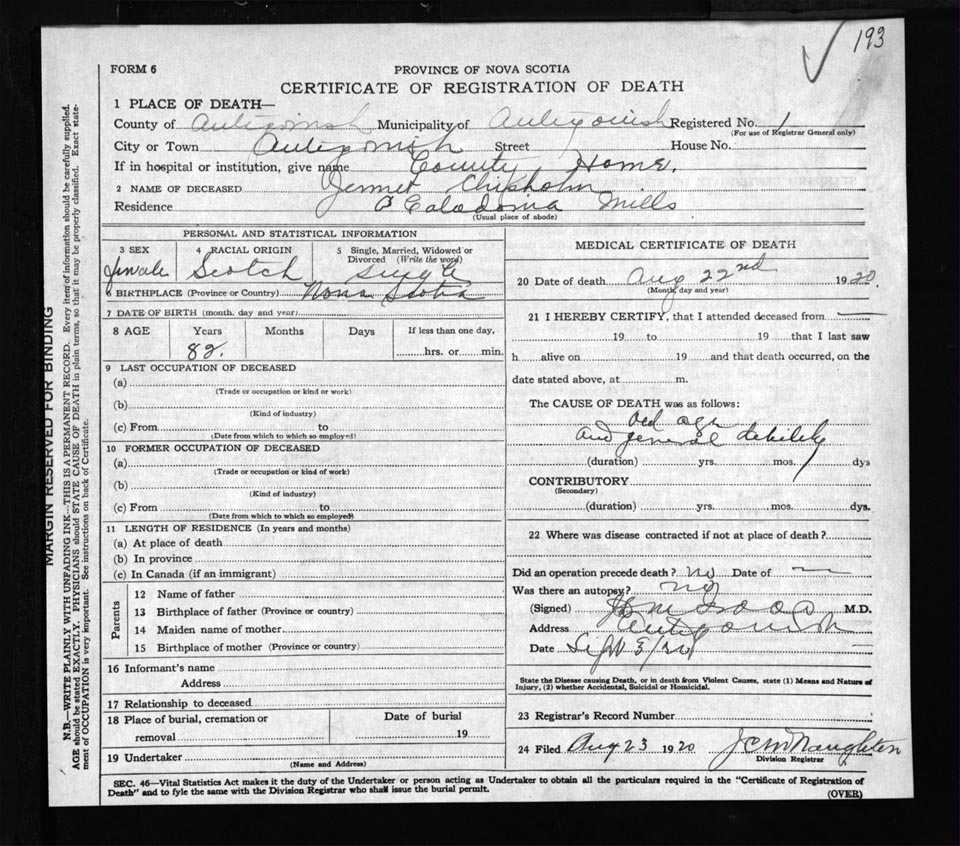 193
FORM 6
PROVINCE OF NOVA SCOTIA
CERTIFICATE OF REGISTRATION OF DEATH
1 PLACE OF DEATH—
County of Antigonish Municipality of Antigonish Registered No. 1
(For use of Registrar General only)
City or Town Antigonish Street House No.
If in hospital or institution, give name County Home.
2 NAME OF DECEASED Jennet Chisholm
Residence Caledonia Mills
(Usual place of abode)
PERSONAL AND STATISTICAL INFORMATION
3 SEX 4 RACIAL ORIGIN 5 Single, Married, Widowed or Divorced (Write the word)
female Scotch single
6 BIRTHPLACE (Province or Country) Nova Scotia
7 DATE OF BIRTH (month, day and year)
8 AGE Years Months Days If less than one day,
82. hrs. or min.
9 LAST OCCUPATION OF DECEASED
(a)
(Trade or occupation or kind of work)
(b)
(Kind of industry)
(c) From to
(Date from which to which so employed)
10 FORMER OCCUPATION OF DECEASED
(a)
(Trade or occupation or kind of work)
(b)
(Kind of industry)
(c) From to
(Date from which to which so employed)
11 LENGTH OF RESIDENCE (In years and months)
(a) At place of death
(b) In province
(c) In Canada (if an immigrant)
Parents
12 Name of father
13 Birthplace of father (Province or country)
14 Maiden name of mother
15 Birthplace of mother (Province or country)
16 Informant's name
Address
17 Relationship to deceased
18 Place of burial, cremation or Date of burial
removal 19
19 Undertaker
(Name and Address)
MEDICAL CERTIFICATE OF DEATH
20 Date of death Aug 22nd 1920
(Month, day and year)
21 I HEREBY CERTIFY, that I attended deceased from —
19 to 19 that I last saw
h alive on 19 and that death occurred, on the
date stated above, at m.
The CAUSE OF DEATH was as follows:
old age
and general debility
(duration) yrs. mos. dys
CONTRIBUTORY
(Secondary)
(duration) yrs. mos. dys.
22 Where was disease contracted if not at place of death?
Did an operation precede death? no Date of —
Was there an autopsy? no
(Signed) M.D.
Address Antigonish
Date Sept 3/20
State the Disease causing Death, or in death from Violent Causes, state (1) Means and Nature of
Injury, (2) whether Accidental, Suicidal or Homicidal.
23 Registrar's Record Number
24 Filed Aug 23 1920 J C McNaughton
Division Registrar
SEC. 46—Vital Statistics Act makes it the duty of the Undertaker or person acting as Undertaker to obtain all the particulars required in the "Certificate of Registration of
Death" and to fyle the same with the Division Registrar who shall issue the burial permit.
(OVER)
MARGIN RESERVED FOR BINDING
N.B.—WRITE PLAINLY WITH UNFADING INK—THIS IS A PERMANENT RECORD. Every item of information should be carefully supplied.
AGE should be stated EXACTLY. PHYSICIANS should STATE CAUSE OF DEATH in plain terms, so that it may be properly classified. Exact state-
ment of OCCUPATION is very important. See instructions on back of Certificate.